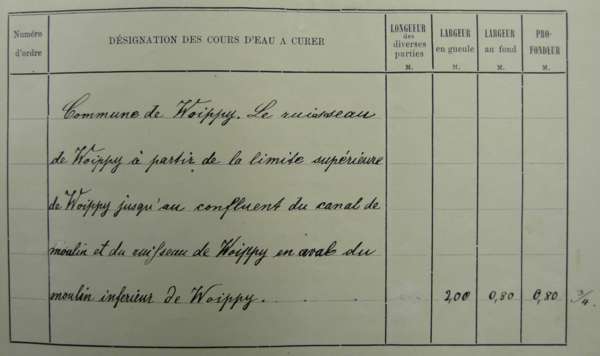 Numéro d'ordre
DÉSIGNATION DES COURS D'EAU A CURER
LONGUEUR des diverses parties M.
LARGEUR en gueule M.
LARGEUR au fond M.
PRO-FONDEUR M.
Commune de Woippy. Le ruisseau
de Woippy à partir de la limite supérieure
de Woippy jusqu'au confluent du canal de
moulin et du ruisseau de Woippy en aval du
moulin inferieur de Woippy. 2,00 0,80 0,80 3/4.